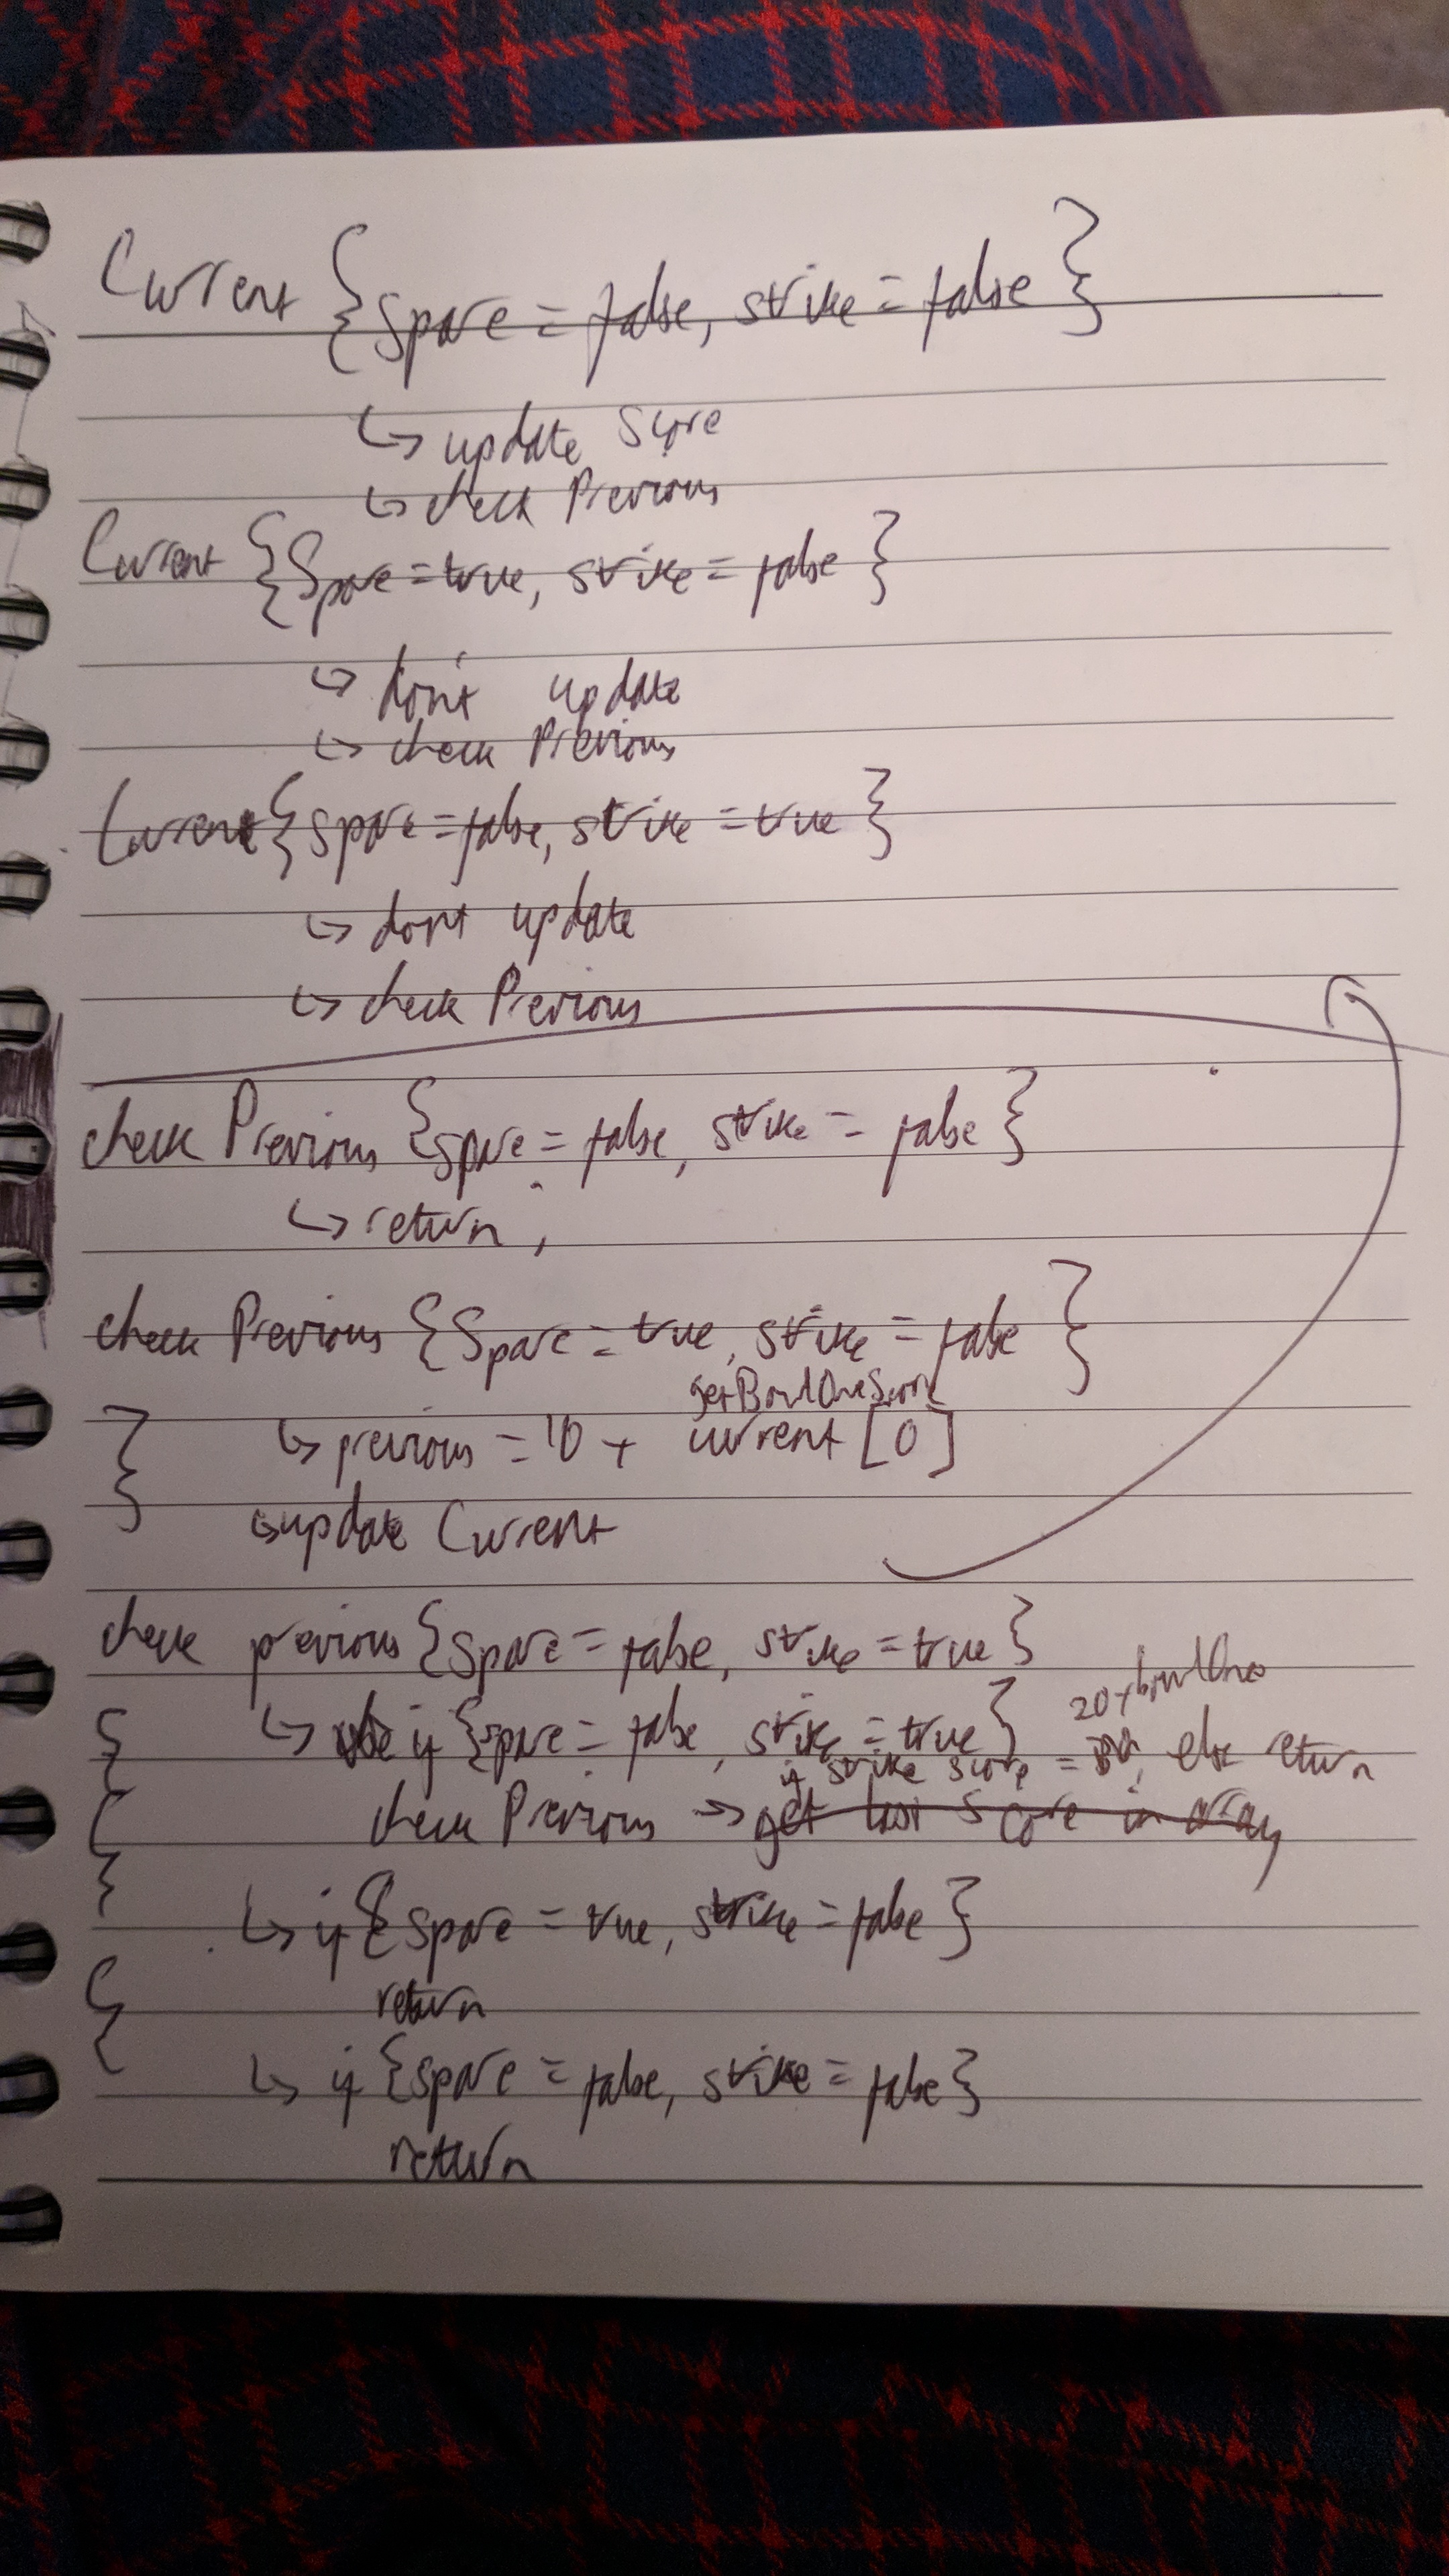 Current {Spare = false, strike = false}
↳ update Score
↳ check Previous
Current {Spare = true, strike = false}
↳ don't update
↳ check Previous
Current {spare = false, strike = true}
↳ dont update
↳ check Previous
check Previous {spare = false, strike = false}
↳ return;
check Previous {Spare = true, strike = false}
getBowlOneScore
↳ previous = 10 + current [0]
↳ update Current
check previous {spare = false, strike = true}
20 + bowlOne
↳ if {spare = false, strike = true}
if strike score = , else return
check Previous → get last score in array
↳ if {spare = true, strike = false}
return
↳ if {spare = false, strike = false}
return